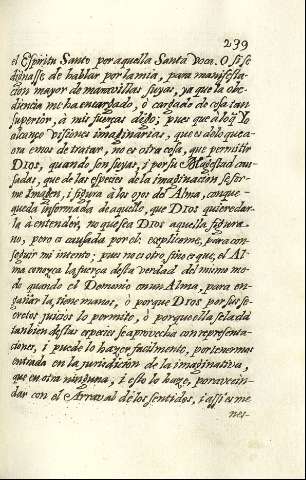 239
el Espiritu Santo por aquella Santa voca. O si se
dignasse de hablar por la mia, para manifesta-
cion mayor de maravillas suyas, ya que la obe-
diencia me ha encargado, ò cargado de cosa tan
superiòr, à mis fuerças digo; pues que à lo q̃ yo
alcanço visiones imaginarias, que es de lo que a-
ora emos de tratar, no es otra cosa, que permitir
DIOS, quando son suyas, i por su Magestad cau-
sadas, que de las especies de la imaginacion, se for-
me Imagen, i figura à los ojos del Alma, con que
queda informada de aquello, que DIOS quiere dar-
la à entender, no que sea DIOS aquella figura
no, pero causada por el: explicome, para con-
seguir mi intento; pues no es otro fino es que, el Al-
ma conozca la fuerça desta verdad del mismo mo-
do quando el Demonio en un Alma, para en-
gañarla, tiene manos, ò porque DIOS por sus se-
cretos juicios lo permite, ò porque ella se la dà
tanbien destas especies se aprovecha con representa-
ciones, i puede lo hazer facilmente, por tenermos
entrada en la jurisdicion de la imaginativa,
que en otra ninguna, i esto lo haze, por avecin-
dar con el Arraval de los sentidos, i assi es me
nes-